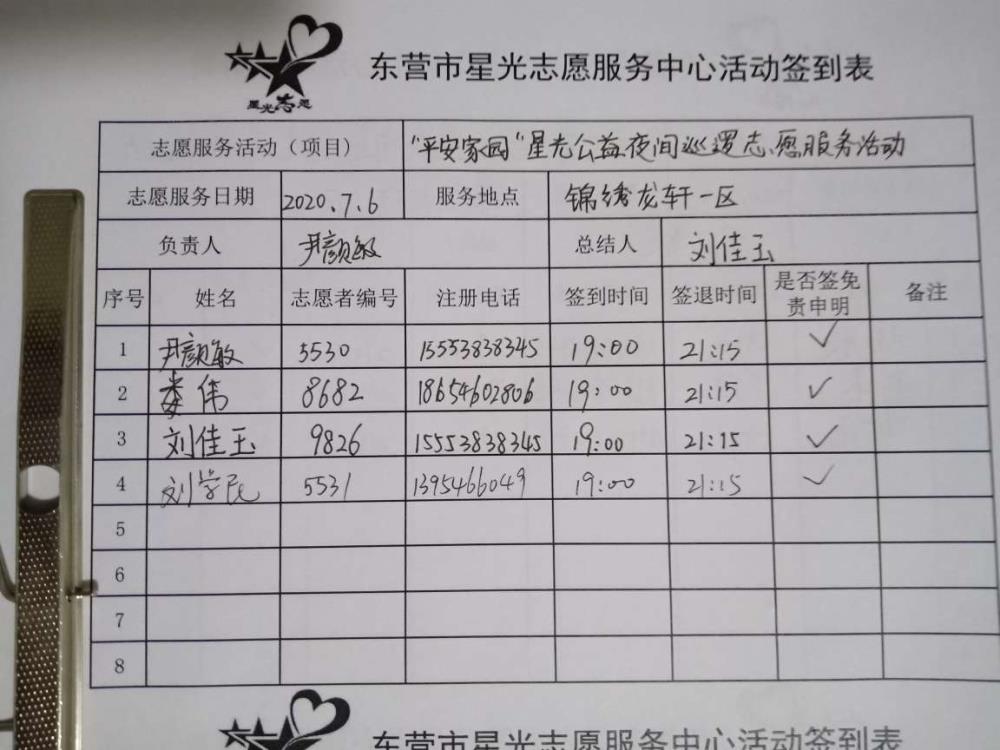 星光志愿
东营市星光志愿服务中心活动签到表
志愿服务活动（项目） "平安家园"星光公益夜间巡逻志愿服务活动
志愿服务日期 2020.7.6 服务地点 锦绣龙轩一区
负责人 尹颜敏 总结人 刘佳玉
序号 姓名 志愿者编号 注册电话 签到时间 签退时间 是否签免责申明 备注
1 尹颜敏 5530 15553838345 19:00 21:15 ✓
2 娄伟 8682 18654602806 19:00 21:15 ✓
3 刘佳玉 9826 15553838345 19:00 21:15 ✓
4 刘学民 5531 1395466049 19:00 21:15 ✓
5
6
7
8
东营市星光志愿服务中心活动签到表